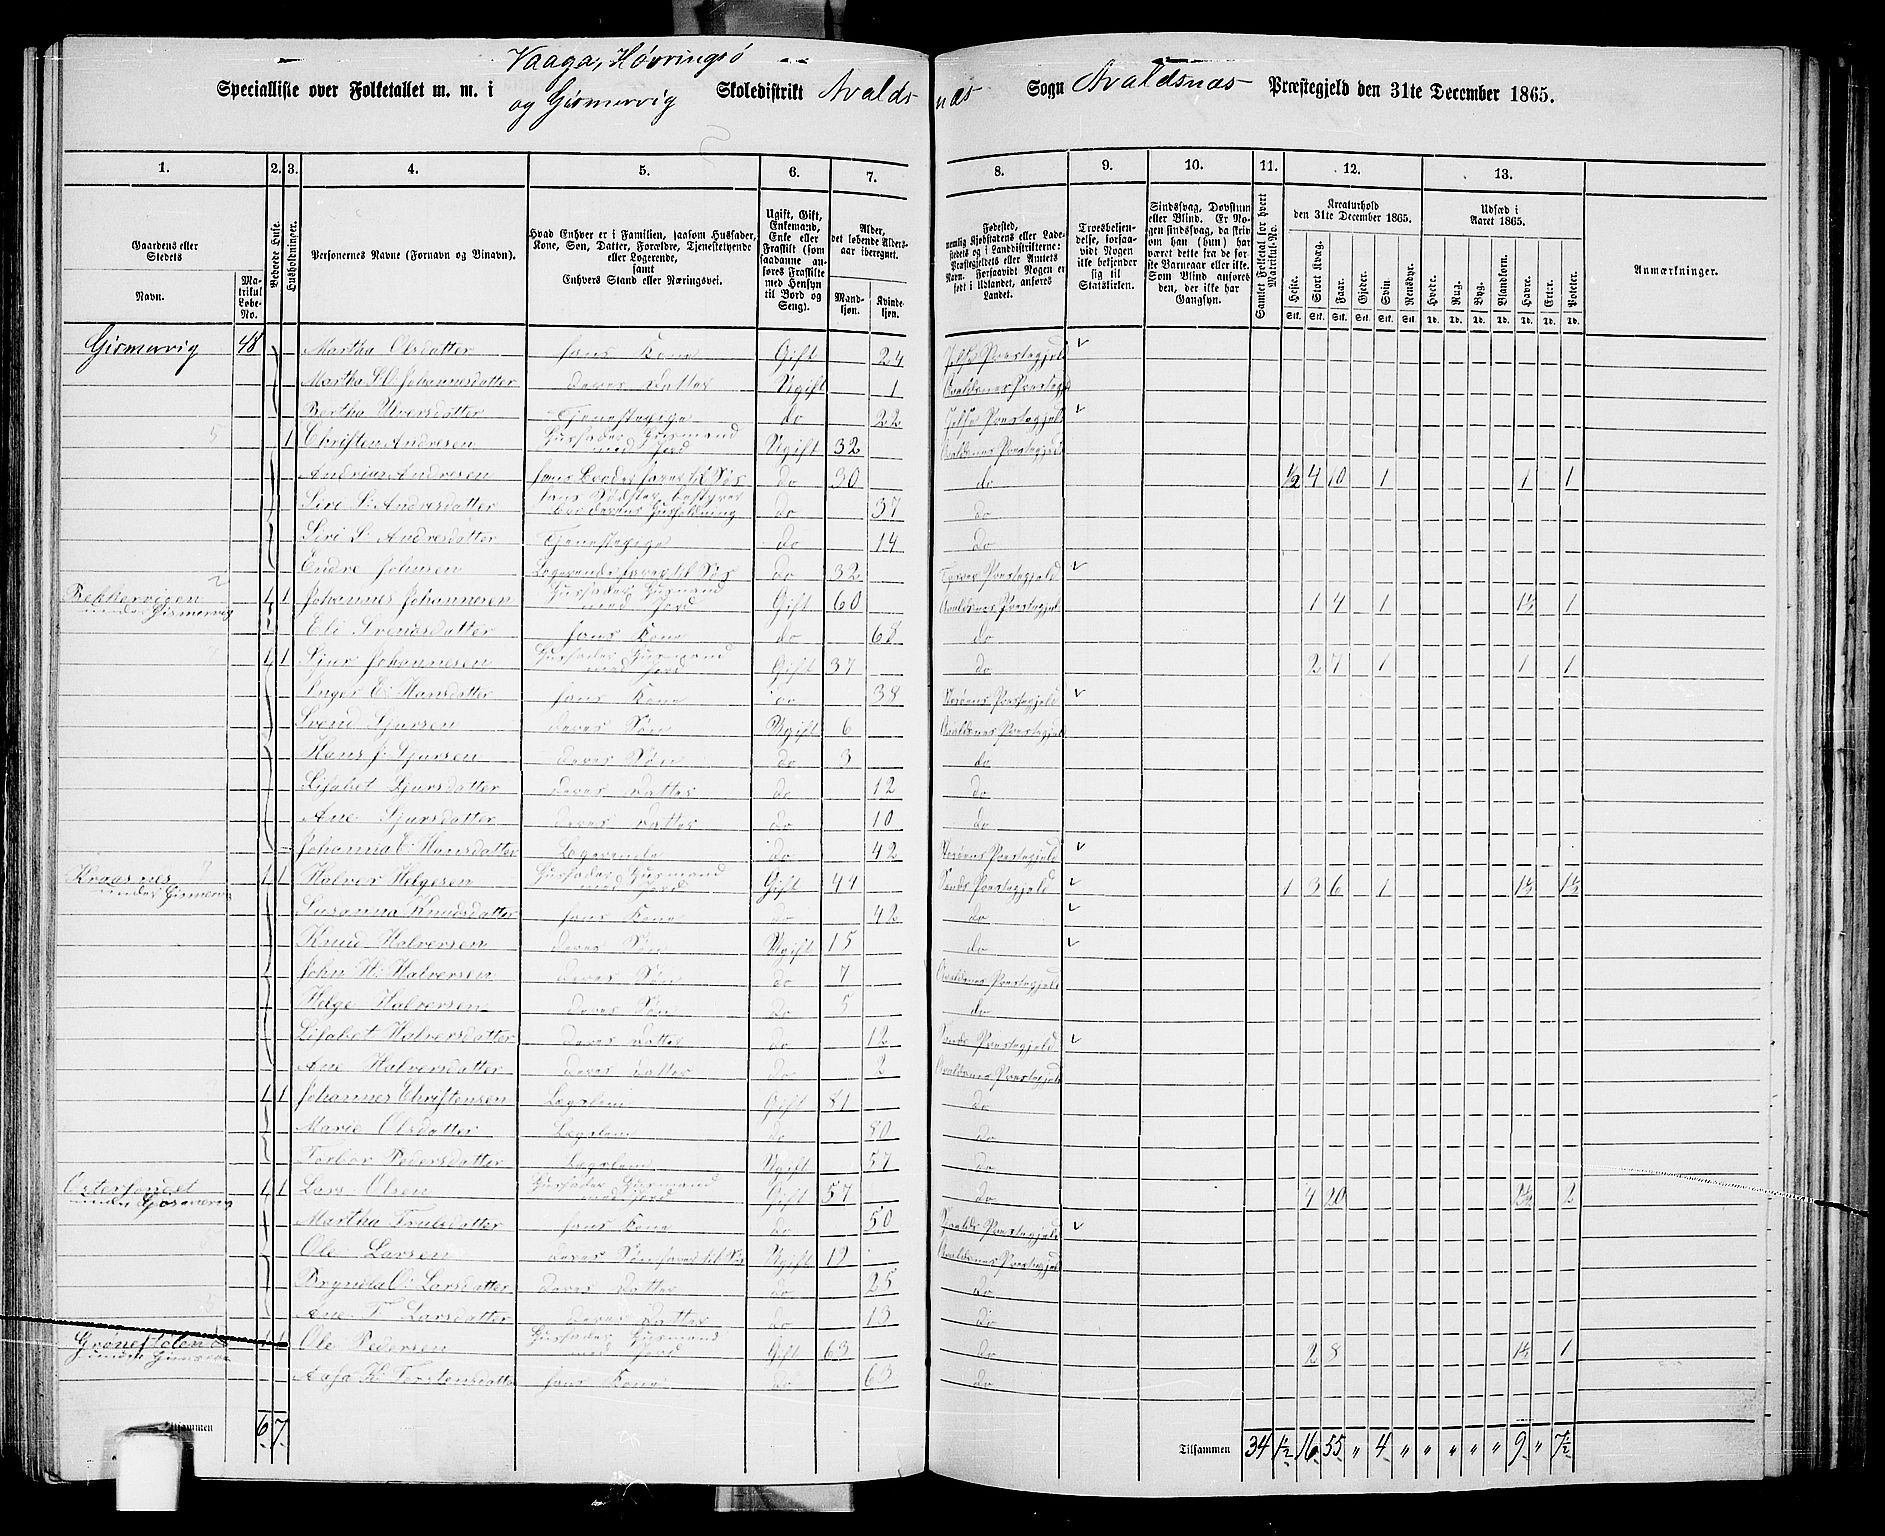 Vaaga, Høvringsø
Specialliste over Folketallet m. m. i og Gismervig Skoledistrikt Avaldsnæs Sogn Avaldsnæs Præstegjeld den 31te December 1865.
1. 2. 3. 4. 5. 6. 7. 8. 9. 10. 11. 12. 13.
Gaardens eller Stedets
Navn.
Matrikul Løbe-No.
Beboede Huse.
Husholdninger.
Personernes Navne (Fornavn og Binavn).
Hvad Enhver er i Familien, saasom Husfader, Kone, Søn, Datter, Forældre, Tjenestetyende eller Logerende, samt Enhvers Stand eller Næringsvei.
Ugift, Gift, Enkemand, Enke eller Fraskilt (som saadanne anføres Fraskilte med Hensyn til Bord og Seng).
Alder, det løbende Alders-aar iberegnet.
Mandkjøn. Kvindekjøn.
Fødested, nemlig Kjøbstadens eller Ladestedets og i Landdistrikterne: Præstegjeldets eller Amtets Navn. Forsaavidt Nogen er født i Udlandet, anføres Landet.
Troesbekjendelse, forsaavidt Nogen ikke bekjender sig til Statskirken.
Sindssvag, Døvstum eller Blind. Er Nogen sindssvag, da skrives om han (hun) har været dette fra de første Barneaar eller ikke. Som Blind anføres den, der ikke har Gangsyn.
Samlet Folketal for hvert Matrikul-No.
Kreaturhold den 31te December 1865.
Heste. Stort Kvæg. Faar. Gjeder. Svin. Rensdyr.
Udsæd i Aaret 1865.
Hvede. Rug. Byg. Blandkorn. Havre. Erter. Poteter.
Anmærkninger.
Gismervig 48 Martha Olsdatter hans Kone Gift 24 Præstegjeld
Johannesdatter deres Datter Ugift 1 Avaldsnes Præstegj
Bertha Iversdatter Tjenestepige do 22 Præstegjeld
1 Christen Andresen Husfader Husmand med Jord Ugift 32 Avaldsnes Præstegjeld
Andreas Andresen do 30 do ½ 4 10 1 1 1
Sire S: Andresdatter do 37 do
Siri S: Andresdatter Tjenestepige do 14 do
Endre Johnsen do 32 Præstegjeld
under Gismervig 1 1 Johannes Johannesen Husfader Husmand med Jord Gift 60 Avaldsnes Præstegjeld 1 4 1 1½ 1
Eli Svendsdatter hans Kone do 68 do
1 1 Sjur Johannesen Husfader Husmand med Jord Gift 37 do 2 7 1 1 1
Inger E: Hansdatter hans Kone do 38 Præstegjeld
Svend Sjursen deres Søn Ugift 6 Avaldsnes Præstegjeld
Hans J: Sjursen deres Søn do 3 do
Lisabet Sjursdatter deres Datter do 12 do
Ane Sjursdatter deres Datter do 10 do
Johanna E: Hansdatter Logerende do 42 Præstegjeld
Kraasnes under Gismervig 1 1 Halver Helgesen Husfader Husmand med Jord Gift 44 Sands Præstegjeld 1 3 6 1 1½ 1½
Susanna Knudsdatter hans Kone do 42 do
Knud Halversen deres Søn Ugift 15 do
John H: Halversen deres Søn do 7 Avaldsnes Præstegjeld
Helge Halversen deres Søn do 5 do
Lisabet Halversdatter deres Datter do 12 Sands Præstegjeld
Ane Halversdatter deres Datter do 2 Avaldsnes Præstegjeld
1 1 Johannes Christensen Lægslem Gift 81 do
Marie Olsdatter Lægslem do 80 do
Torbor Pedersdatter Lægslem Ugift 57 do
under Gismervig 1 1 Lars Olsen Husfader Husmand med Jord Gift 57 do 4 20 2½ 2
Martha hans Kone do 50 Præstegjeld
Ole Larsen Ugift 19 Avaldsnes Præstegjeld
Larsdatter deres Datter do 25 do
Ane T Larsdatter deres Datter do 13 do
under Gismervig 1 1 Ole Pedersen Husfader Husmand med Jord Gift 63 do 2 8 1½ 1
Torstensdatter hans Kone do 63 do
Tilsammen 6 7 Tilsammen 34 1½ 16 55 " 4 " " " " " 9 " 7½